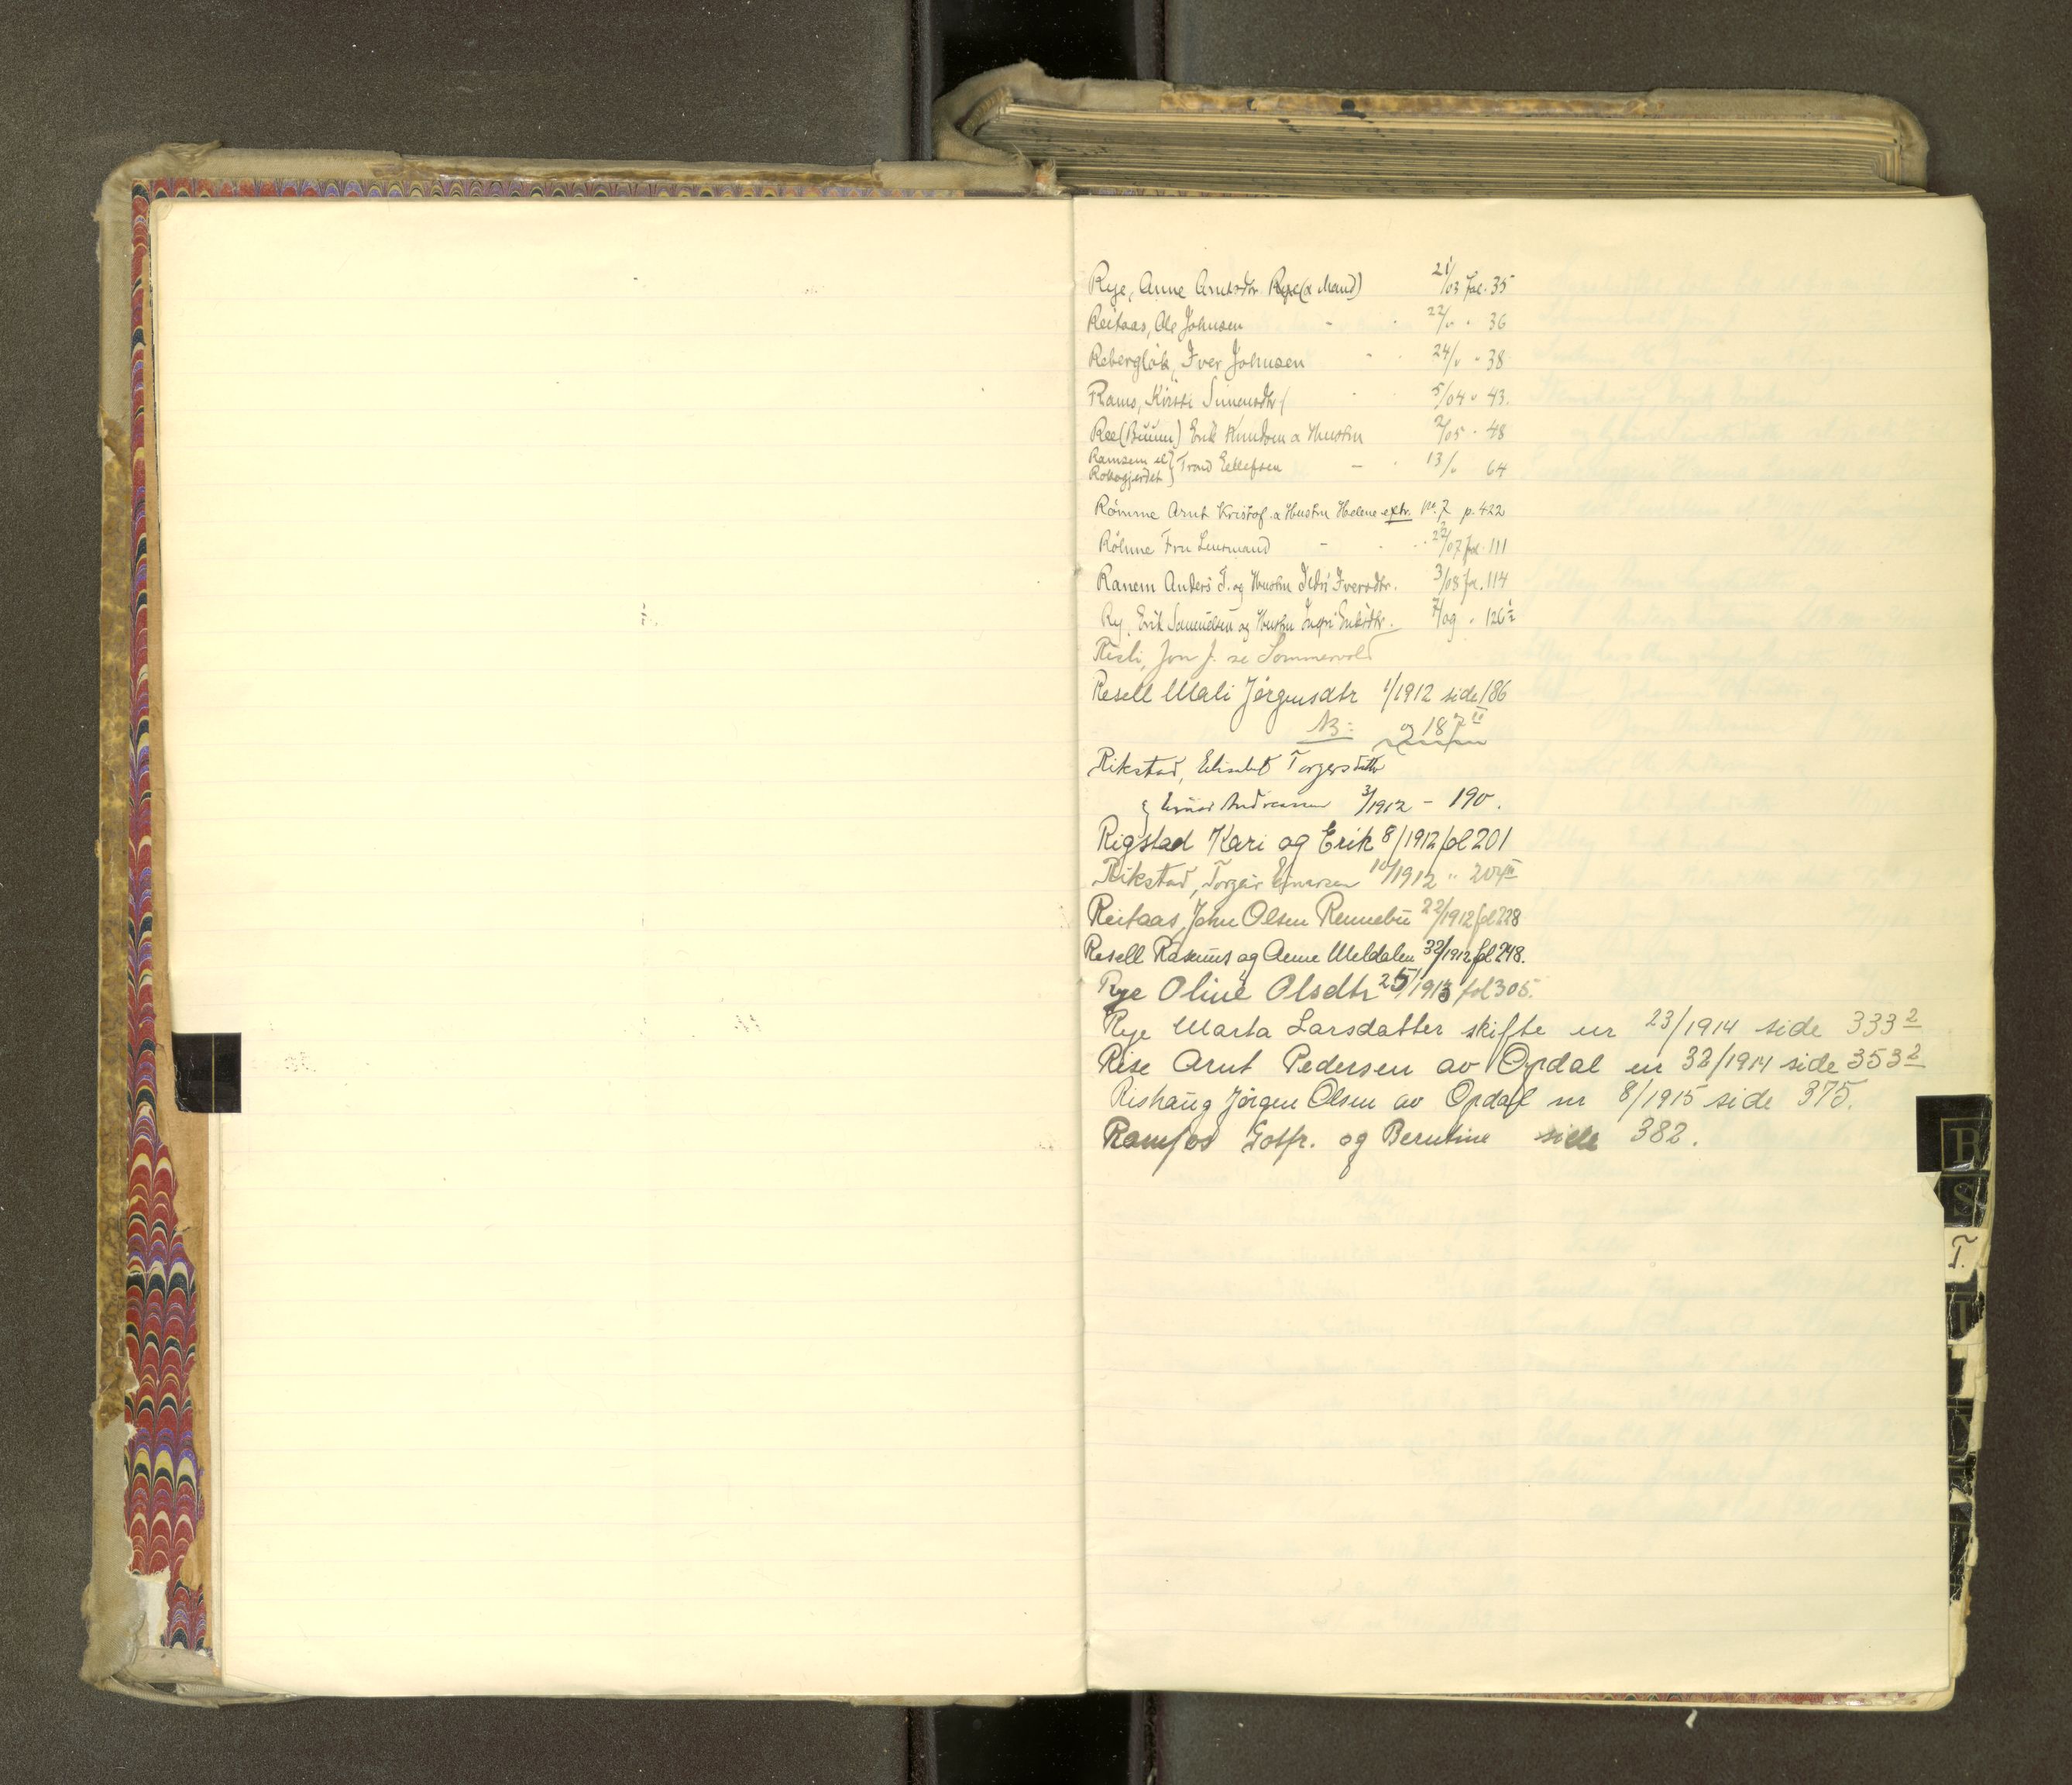 Rye, Anne Arntsdtr. Rye (& Mand) 21/03 fol. 35
Reitaas, Ole Johnsen - " 22/" " 36
Rebergløk, Iver Johnsen " " 24/" " 38
Ramo, Kirsti Simensdtr " " 5/04 " 43.
Ree (Buum) Erik Knudsen & Hustru 2/05 " 48
Ramsem el
Rokkogjerdet } Trond Eellefsen - " 13/" 64
Rømme Arnt Kristof. & Hustru Helene extr. Nr. 7 p. 422
Røhme Fru Lensmand - " 22/07 fol. 111
Ranem Anders I. og Hustru Ildri Iversdtr. 3/08 fol. 114
Ry, Erik Samuelsen og Hustru Ingri Eriksdtr. 7/09 " 126
Risli, Jon J. se Sommervold
Resell Mali Jørgensdtr 1/1912 side 186
NB: og 187 II
Rikstad, Elisabet Torgersdatter
Einar Andreassen 3/1912 - 190.
Rigstad Kari og Erik 8/1912 fol 201
Rikstad, Torgeir Einarsen 10/1912 " 204 III
Reitaas, John Olsen Rennebu 22/1912 fol 228
Resell Rasmus og Anne Meldalen 32/1912 fol 248.
Rye Oline Olsdtr 25/1913 fol 305.
Rye Marta Larsdatter skifte nr 23/1914 side 333 2
Rise Arnt Pedersen av Opdal nr 32/1914 side 353 2
Rishaug Jørgen Olsen av Opdal nr 8/1915 side 375.
Ramfos Gotfr. og Berntine side 382.
B
S
T.
T